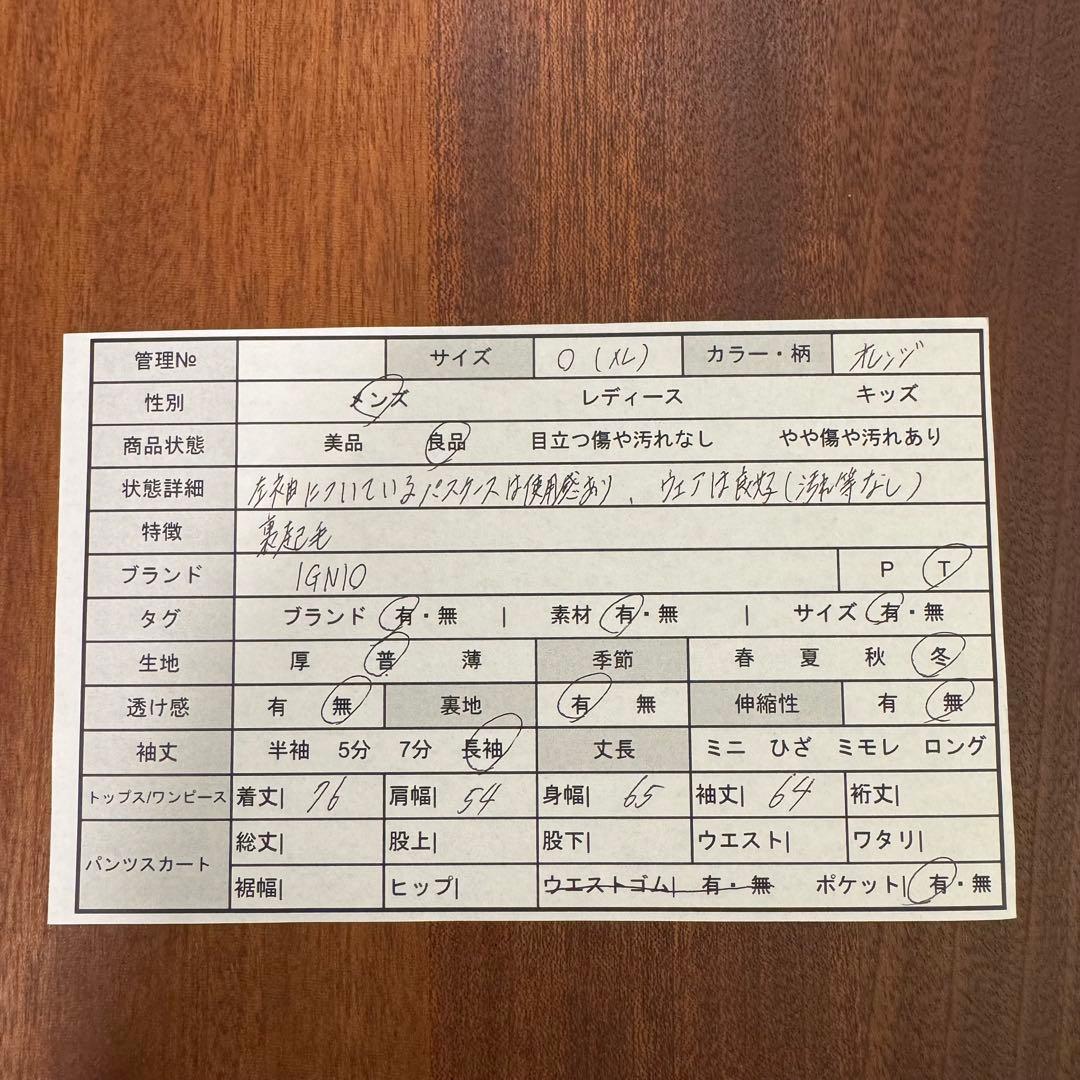 管理№ サイズ O (XL) カラー・柄 オレンジ
性別 メンズ レディース キッズ
商品状態 美品 良品 目立つ傷や汚れなし やや傷や汚れあり
状態詳細 左袖についているパスケースは使用感あり、ウェアは良好(汚れ等なし)
特徴 裏起毛
ブランド IGNIO P T
タグ ブランド 有・無 | 素材 有・無 | サイズ 有・無
生地 厚 普 薄 季節 春 夏 秋 冬
透け感 有 無 裏地 有 無 伸縮性 有 無
袖丈 半袖 5分 7分 長袖 丈長 ミニ ひざ ミモレ ロング
トップス/ワンピース 着丈| 76 肩幅| 54 身幅| 65 袖丈| 64 裄丈|
パンツスカート 総丈| 股上| 股下| ウエスト| ワタリ|
裾幅| ヒップ| ウエストゴム| 有・無 ポケット| 有・無